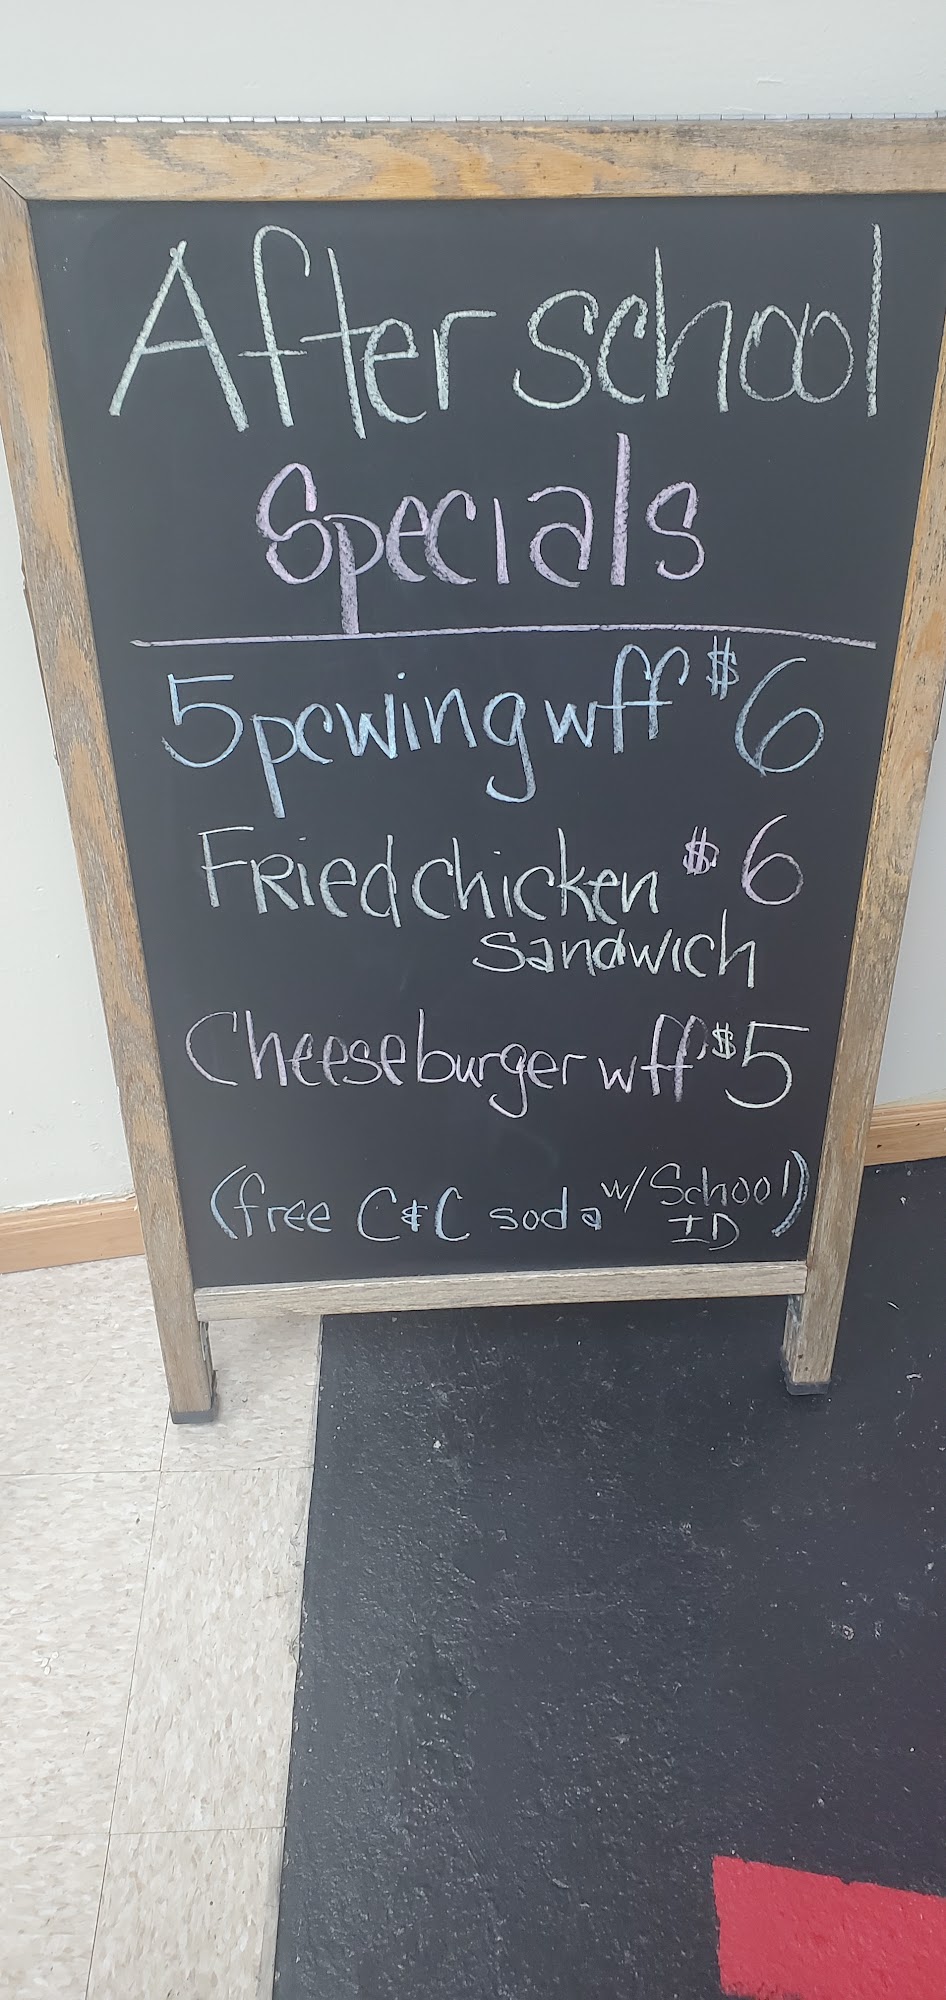 After school
Specials
5pc wing wff $6
Fried chicken $6
sandwich
Cheese burger wff $5
(free C&C soda w/ School ID)